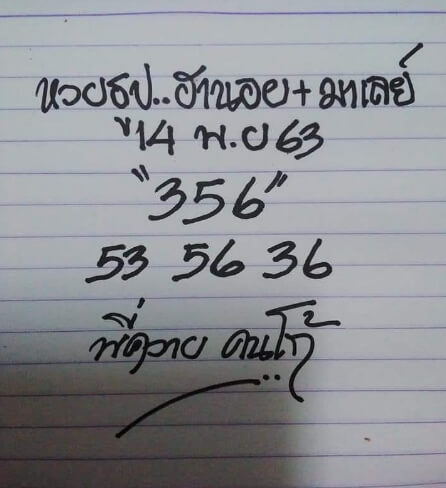 หวยธป..ฮานอย+มาเลย์
14 พ.ย 63
"356"
53 56 36
พี่ควาย คนโก้